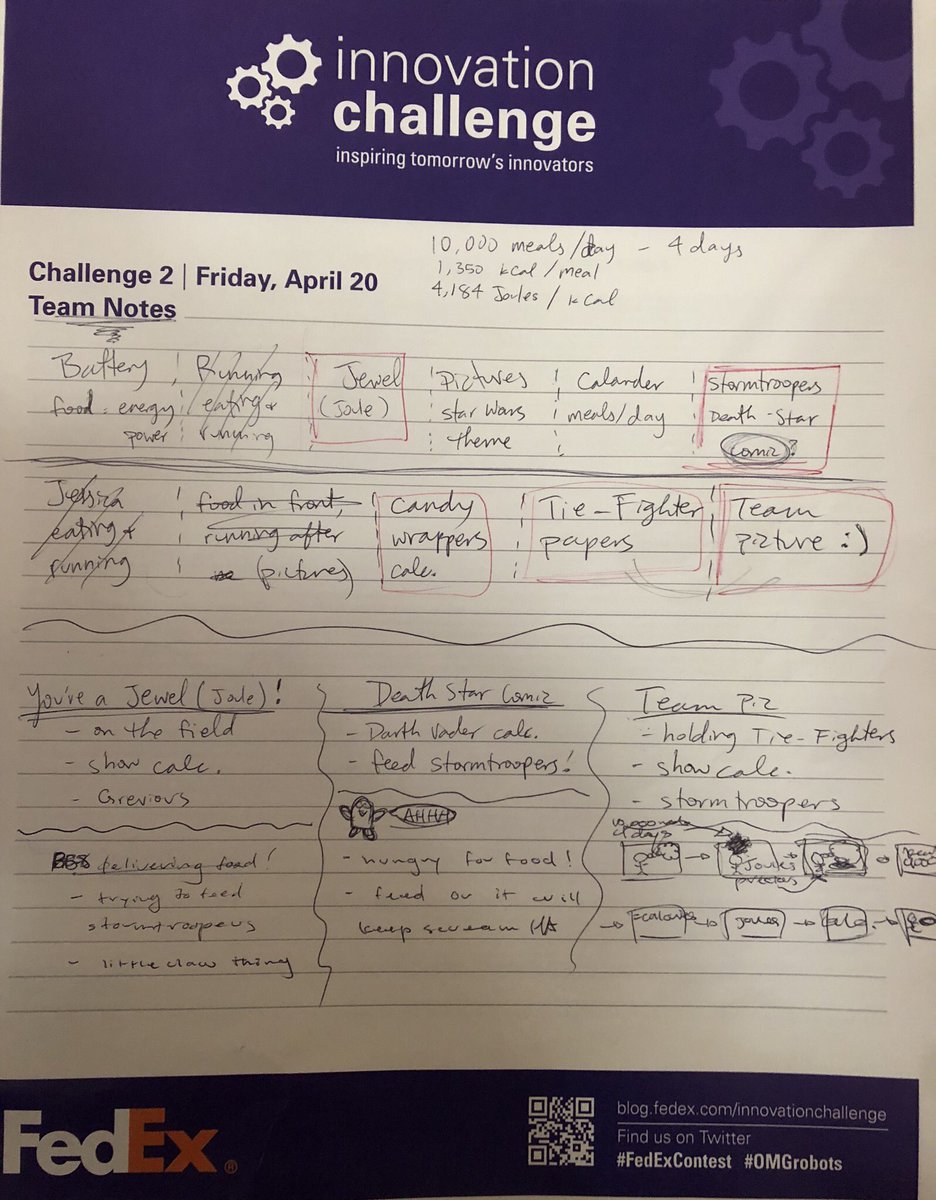 innovation
challenge
inspiring tomorrow's innovators
10,000 meals/day - 4 days
1,350 kcal/meal
4,184 Joules/kcal
Challenge 2 | Friday, April 20
Team Notes
Battery
food: energy
power
Running
eating +
running
Jewel
(Joule)
Pictures
star wars
theme
Calander
meals/day
Stormtroopers
Death-Star
Comic?
Jessica
eating +
running
food in front,
running after
(pictures)
Candy
wrappers
calc.
Tie-Fighter
papers
Team
picture :)
You're a Jewel (Joule)!
- on the field
- show calc.
- Grevious
BB8 delivering food!
- trying to feed
stormtroopers
- little claw thing
Death Star Comic
- Darth Vader calc.
- feed Stormtroopers!
AHHH
- hungry for food!
- feed or it will
keep scream
Team Pic
- holding Tie-Fighters
- show calc.
- stormtroopers
4 days
Joules
precious
Joules
FedEx®
blog.fedex.com/innovationchallenge
Find us on Twitter
#FedExContest #OMGrobots